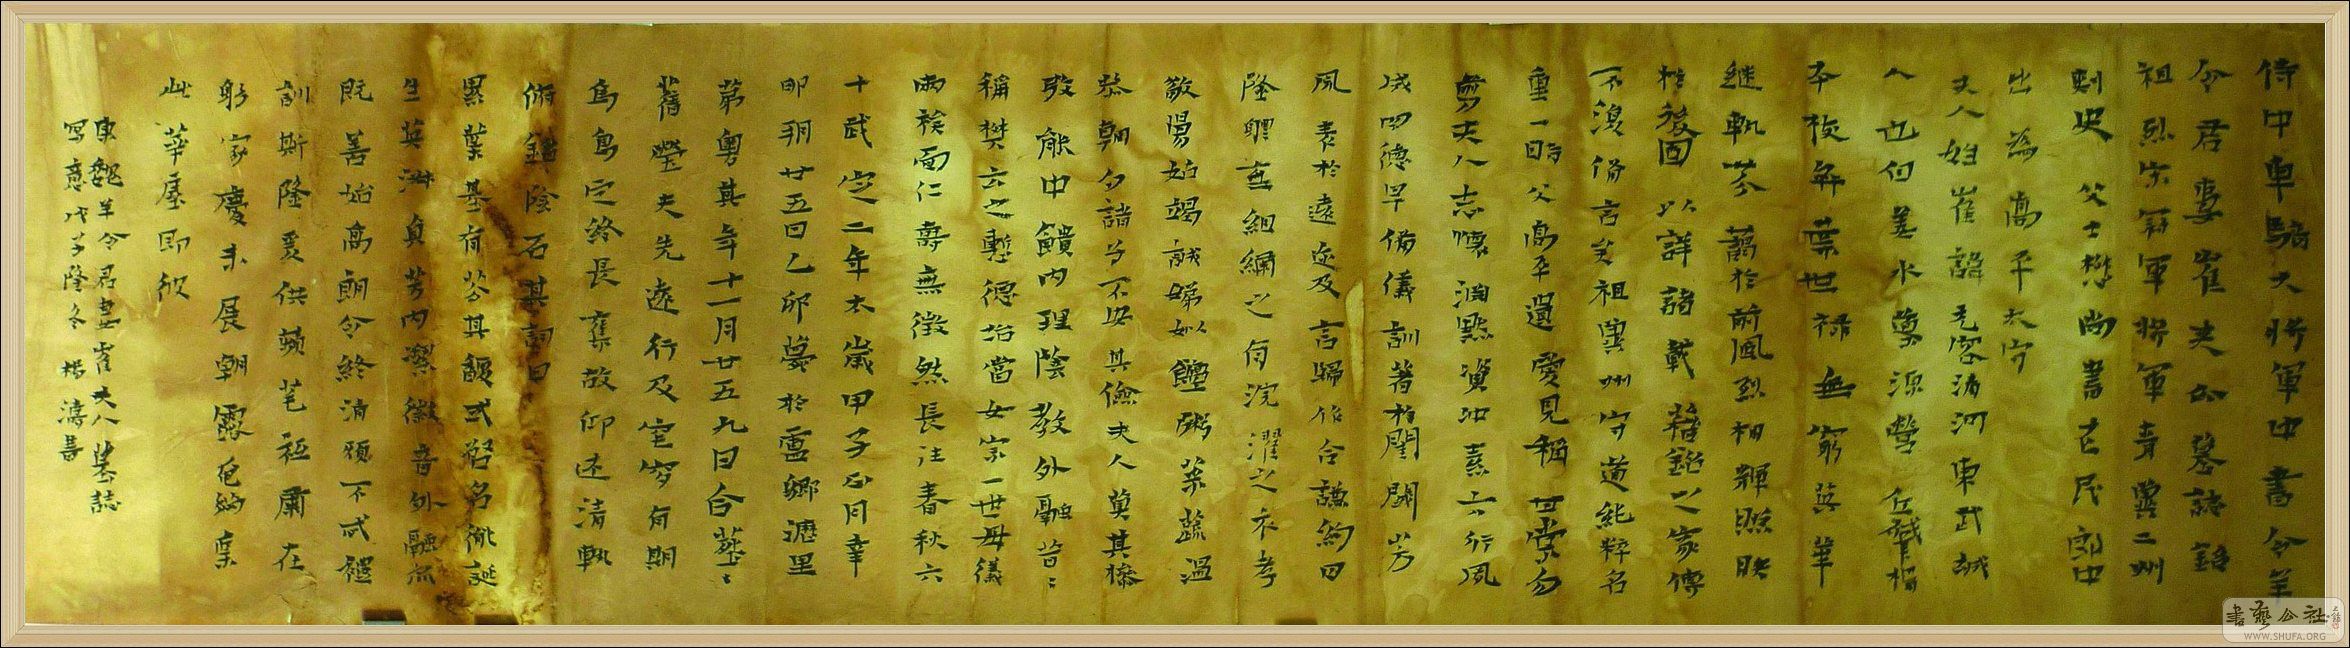 侍中車騎大將軍中書令羊
令君妻崔夫人墓誌銘
祖烈宗冠軍將軍青冀二州
刺史 父士懋尚書右民郎中
出為高平太守
夫人姓崔諱元容清河東武城
人也但姜水肇源營丘誠構
本枝弈葉世祿無窮英華
繼軌芬藹於前風烈相輝照映
於後固以詳諸載藉銘之家傳
不復備言矣祖冀州守道純粹名
重一時父高平遺愛見稱世業勿
剪夫人志懷淵默資沖素六行夙
成四德早備儀訓著於閨闈芳
風表於遠迩及言歸作合謙約曰
隆體無細綱之有浣濯之衣孝
敬陽始竭誠娣姒饘粥菜蔬溫
恭朝夕諸弟不畄其儉夫人奠其慘
敬能中饋內理陰教外融昔之
稱樊六之慙德始當女宗一世母儀
兩族而仁壽無徵然長往春秋六
十武定二年太歲甲子正月辛
卯朔廿五日乙卯薨於盧鄉瀝里
第粵其年十一月廿五九日合葬之
舊塋夫先遠行及宅穸有期
烏鳥定終長棄故仰述清軌
俯鐫陰石其詞曰
累葉基有芬其馥或啓名徽誕
生英淋貞芳內潔徽音外融
既善始高朗令終清顏不忒禮
訓斯隆爰供蘋芼祗肅在
躬家慶未展朝露俄
此華屋即彼
東魏羊令君妻崔夫人墓誌
寫意戊子隆冬楊濤書
書藝公社
WWW.SHUFA.ORG